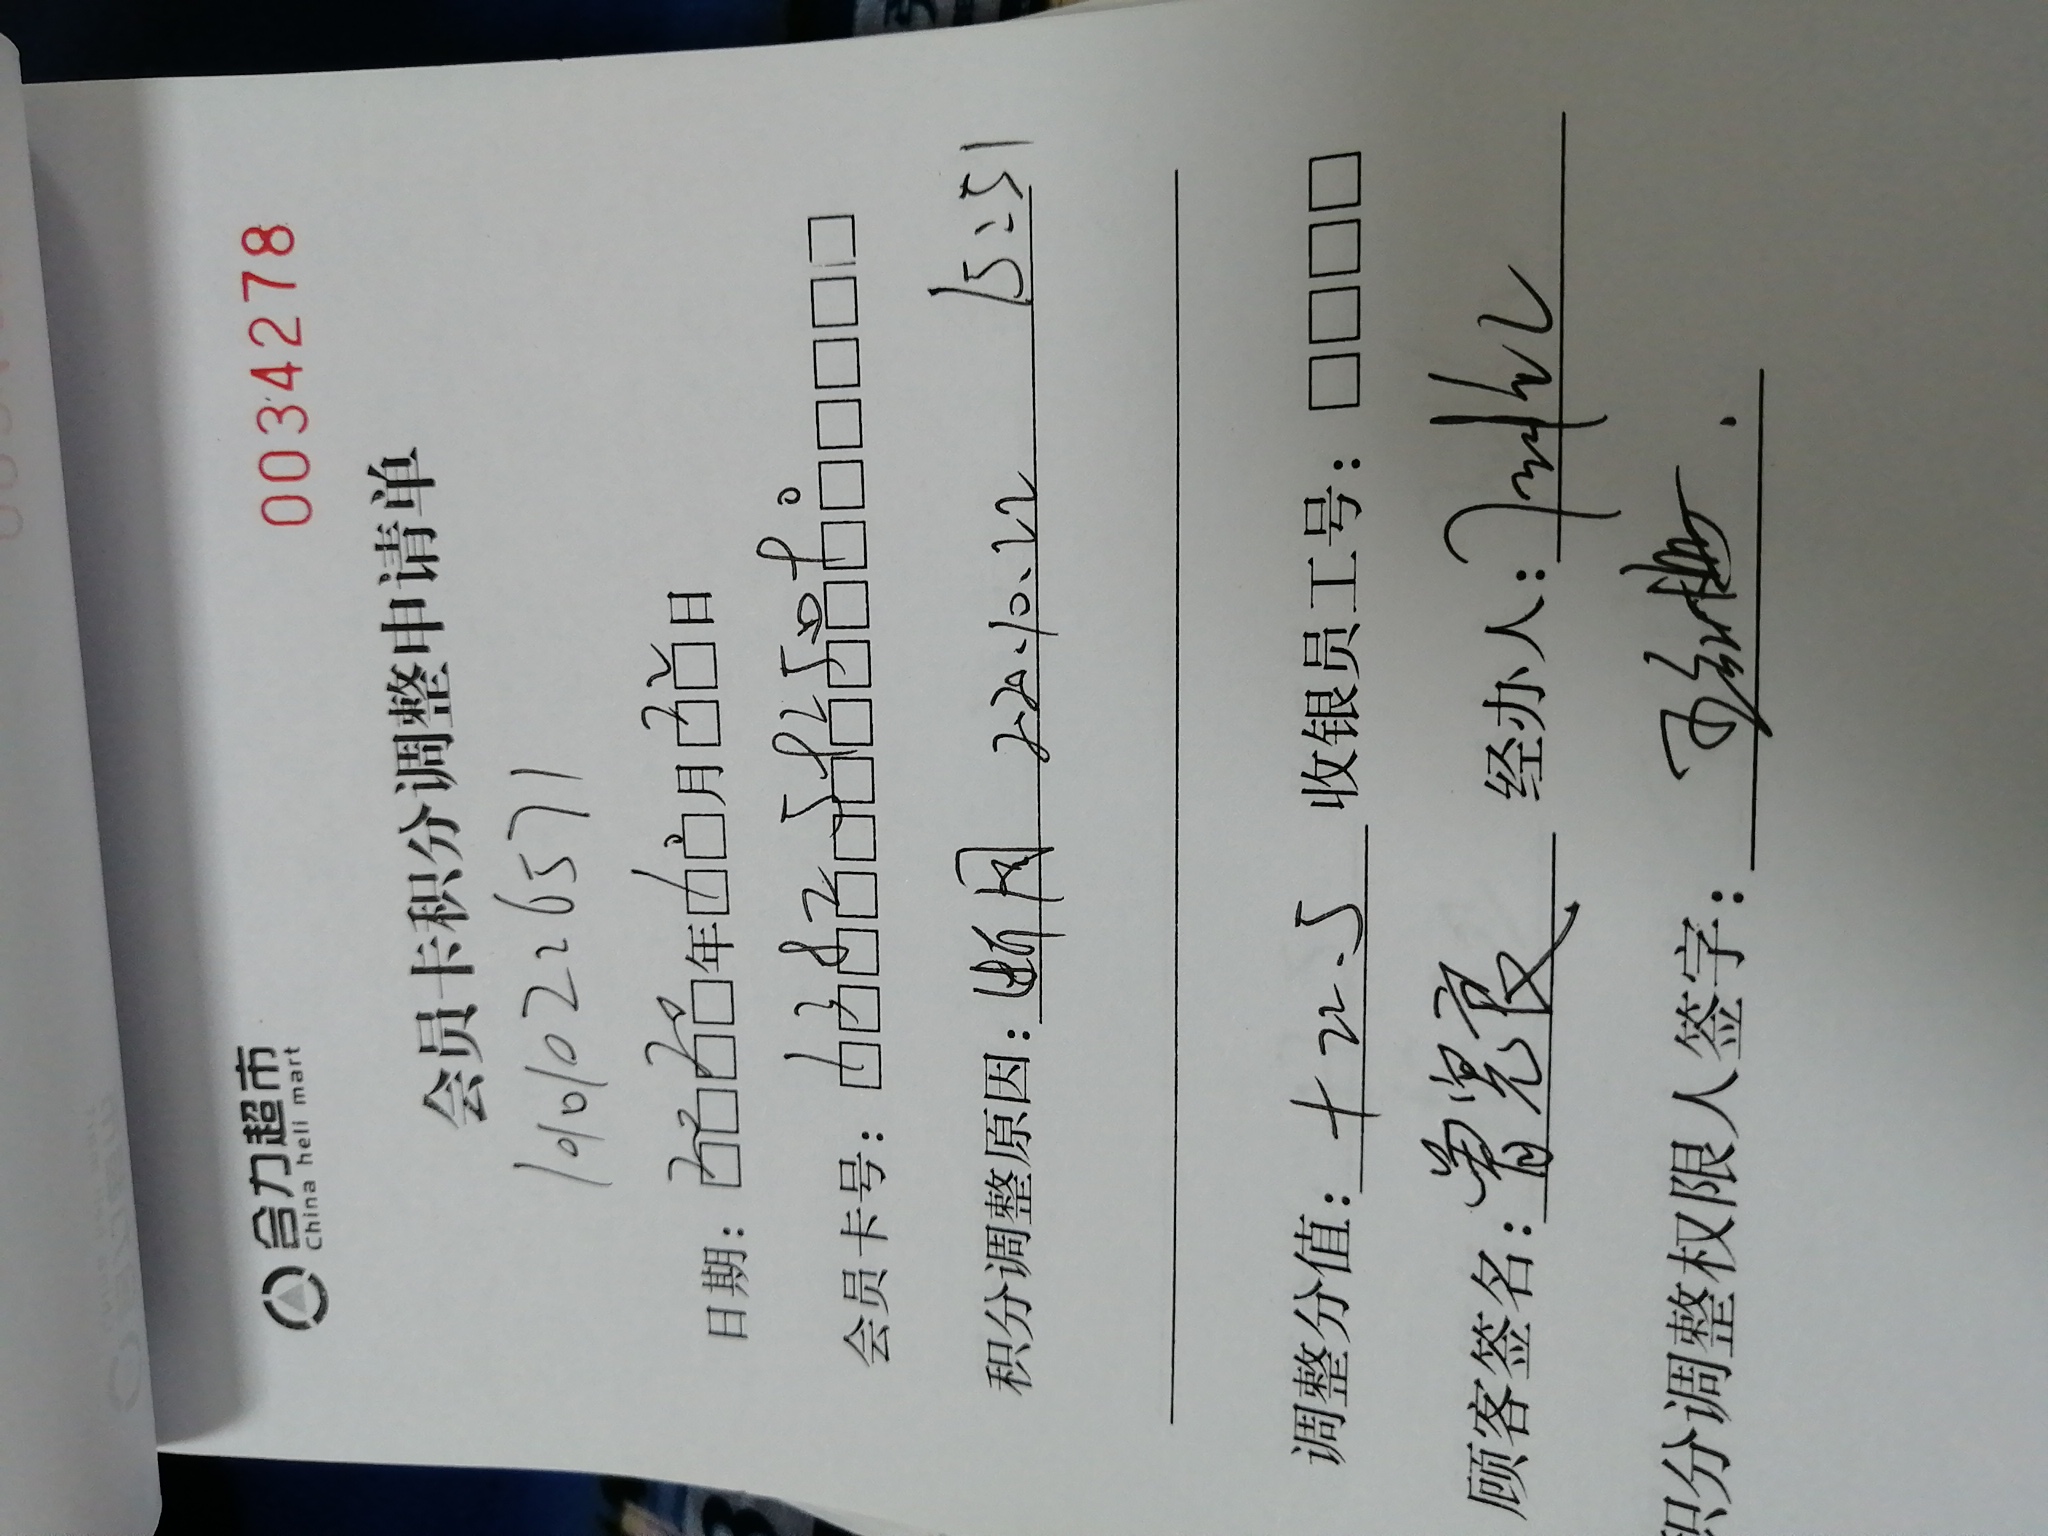 合力超市
China heli mart
0034278
会员卡积分调整申请单
1010226571
日期：2020年10月22日
会员卡号：
积分调整原因：断网 220.10.22 15:51
调整分值：+22.5 收银员工号：□□□□
顾客签名： 经办人：
积分调整权限人签字：